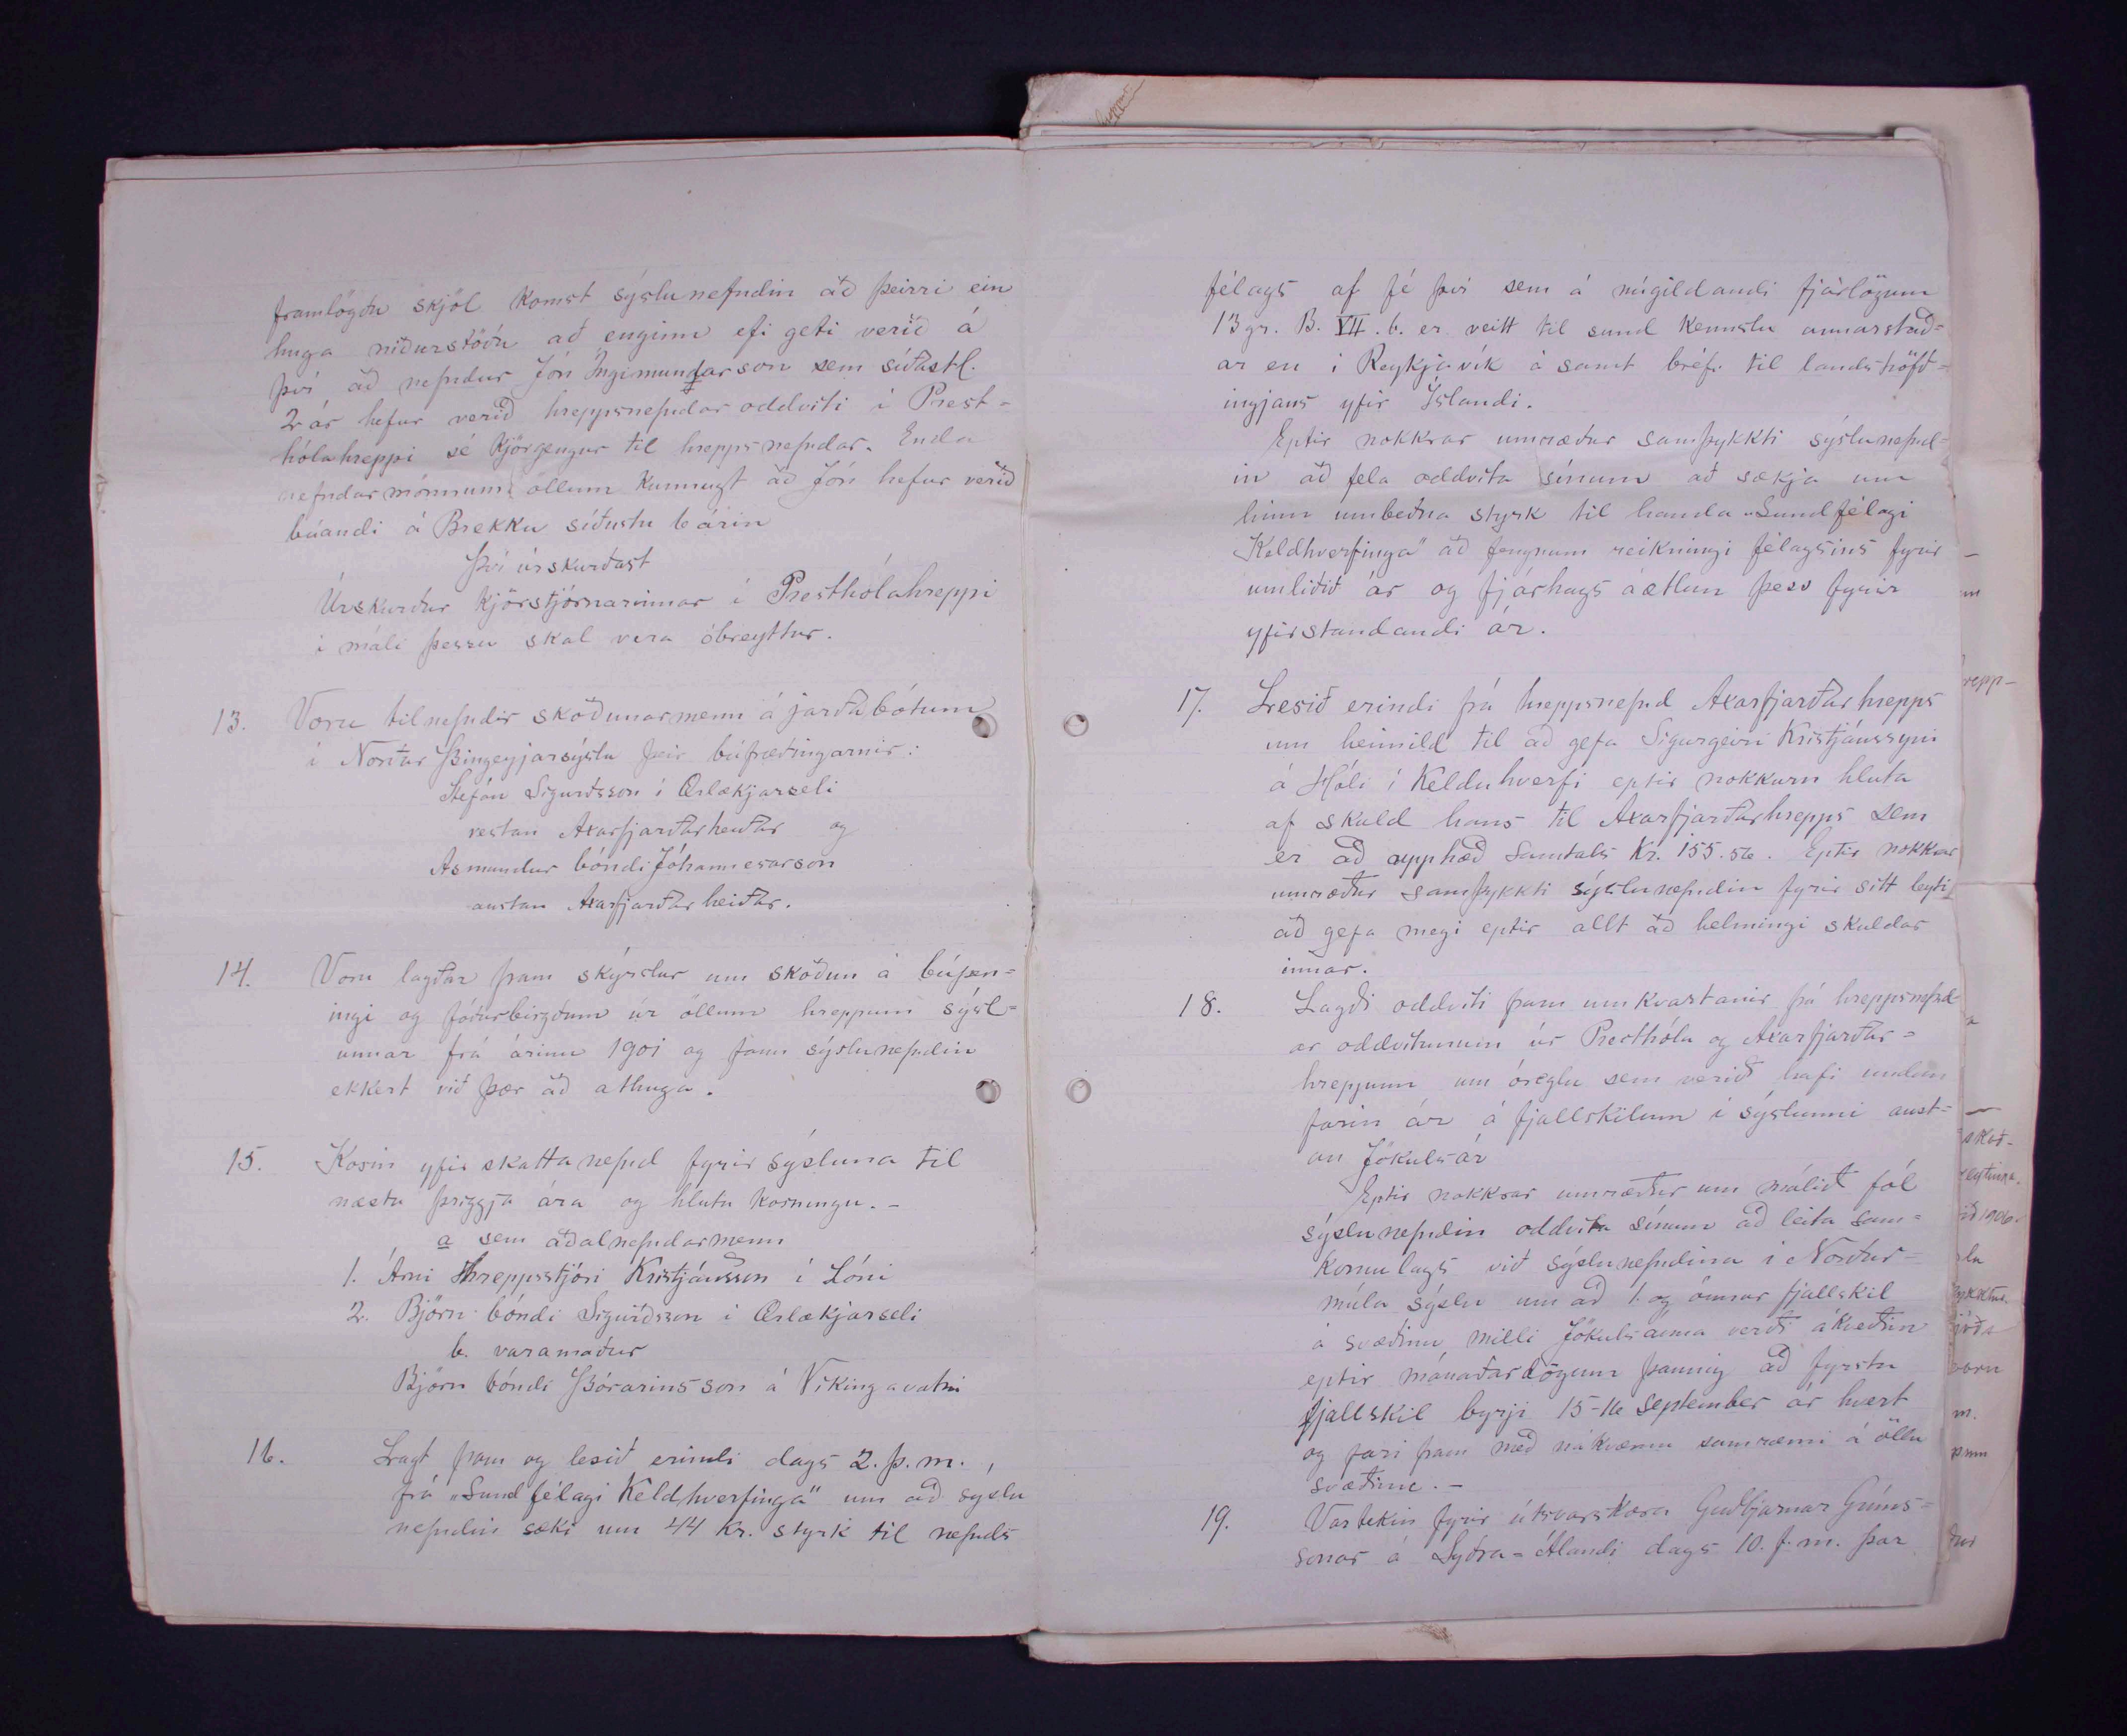 framlögðu skjöl komst sýslunefndin að þeirri ein
huga niðurstöðu að enginn efi geti verið á
því að nefndur Jón Ingimundarson sem síðastl.
2 ár hefur verið hreppsnefndaroddviti í Prest-
hólahreppi sé kjörgengur til hreppsnefndar. Enda
nefndarmönnum öllum kunnugt að Jón hefur verið
búandi á Brekku síðustu 6 árin
Því úrskurðast
Úrskurður kjörstjórnarinnar í Presthólahreppi
í máli þessu skal vera óbreyttur.
13. Voru tilnefndir skoðunarmenn á jarðabótum
í Norður Þingeyjarsýslu þeir búfræðingarnir:
Stefán Sigurðsson í Ærlækjarseli
vestan Axarfjarðarheiðar og
Asmundur bóndi Jóhannesarson
austan Axarfjarðarheiðar.
14. Voru lagðar fram skýrslur um skoðun á búpen=
ingi og fóðurbirgðum úr öllum hreppum sýsl=
unnar frá árinu 1901 og fann sýslunefndin
ekkert við þær að athuga.
15. Kosin yfirskattanefnd fyrir sýsluna til
næstu þriggja ára og hlutu kosningu. -
a sem aðalnefndarmenn
1. Árni hreppsstjóri Kristjánsson í Lóni
2. Björn bóndi Sigurðsson í Ærlækjarseli
b. varamaður
Björn bóndi Þórarinsson á Víkingavatni
16. Lagt fram og lesið erindi dags 2. þ. m. ,
frá „Sundfélagi Keldhverfinga" um að sýslu
nefndin sæki um 44 kr. styrk til nefnds
félags af fé því sem á núgildandi fjárlögum
13 gr. B. VII. 6. er veitt til sund kennslu annarstað=
ar en í Reykjavík á samt bréfi til landshöfð=
ingjans yfir Íslandi.
Eptir nokkrar umræður samþykkti sýslunefnd=
in að fela oddvita sínum að sækja um
hinn umbeðna styrk til handa „Sundfélagi
Keldhverfinga" að fengnum reikningi félagsins fyrir
umliðið ár og fjárhagsáætlun þess fyrir
yfirstandandi ár.
17. Lesið erindi frá hreppsnefnd Axarfjarðarhrepps
um heimild til að gefa Sigurgeiri Kristjánssyni
á Hóli í Kelduhverfi eptir nokkurn hluta
af skuld hans til Axarfjarðarhrepps sem
er að upphæð samtals kr. 155.56. Eptir nokkrar
umræður samþykkti sýslunefndin fyrir sitt leyti
að gefa megi eptir allt að helmingi skuldar
innar.
18. Lagði oddviti fram umkvartanir frá hreppsnefnd=
ar oddvitunum úr Presthóla og Axarfjarðar=
hreppum um óreglu sem verið hafi undan
farin ár á fjallskilum í sýslunni aust=
an Jökulsár
Eptir nokkrar umræður um málið fól
sýslunefndin oddvita sínum að leita sam=
komulags við sýslunefndina í Norður=
múla sýslu um að 1. og önnur fjallskil
á svæðinu milli Jökulsánna verði ákveðin
eptir mánaðardögum þannig að fyrstu
fjallskil byrji 15-16 September ár hvert
og fari fram með nákvæmu samræmi á öllu
svæðinu. -
19. Var tekin fyrir útsvarskæra Guðbjarnar Gríms=
sonar á Syðra=Álandi dags 10. f. m. þar